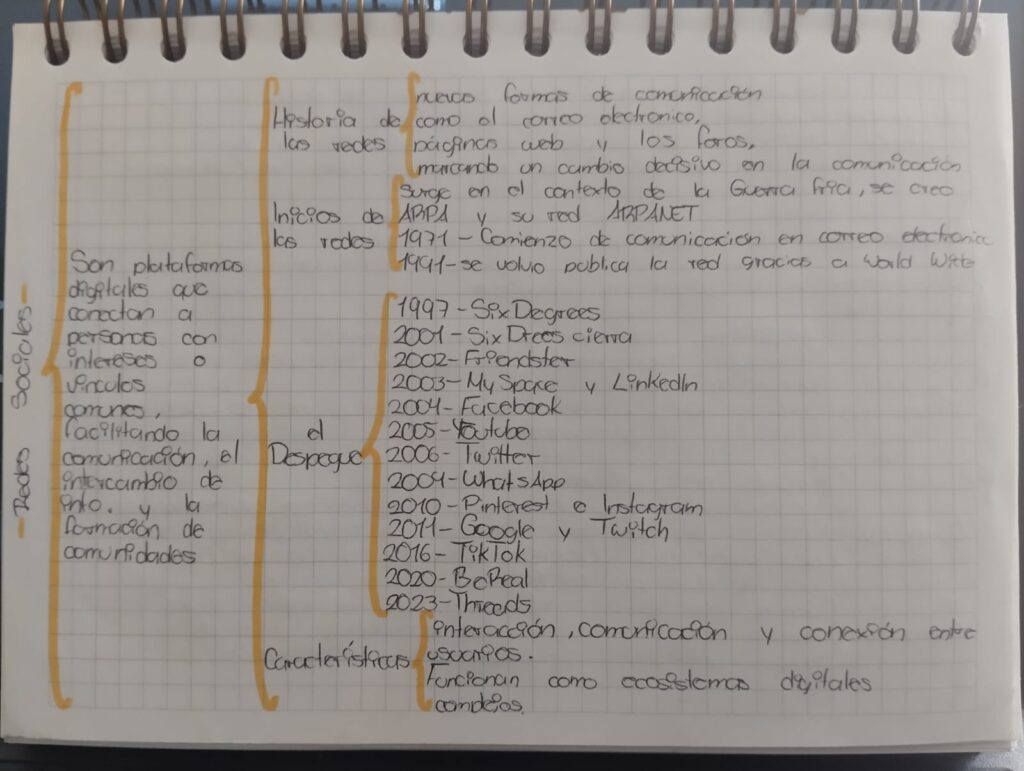 -Redes Sociales-
Son plataformas
digitales que
conectan a
personas con
intereses o
vinculos
comunes,
facilitando la
comunicación, el
intercambio de
info. y la
formación de
comunidades
Historia de
las redes
nuevas formas de comunicación
como el correo electronico,
páginas web y los foros,
marcando un cambio decisivo en la comunicación
Inicios de
las redes
Surge en el contexto de la Guerra fria, se creo
ARPA y su red ARPANET
1971-Comienzo de comunicacion en correo electronic
1991-se volvio publica la red gracias a World Wide
el
Despegue
1997-SixDegrees
2001-Six Drees cierra
2002-Friendster
2003-My Space y LinkedIn
2004-Facebook
2005-Youtube
2006-Twitter
2009-WhatsApp
2010-Pinterest e Instagram
2011-Google y Twitch
2016-TikTok
2020-BeReal
2023-Threads
Características
interacción, comunicación y conexión entre
usuarios.
Funcionan como ecosistemas digitales